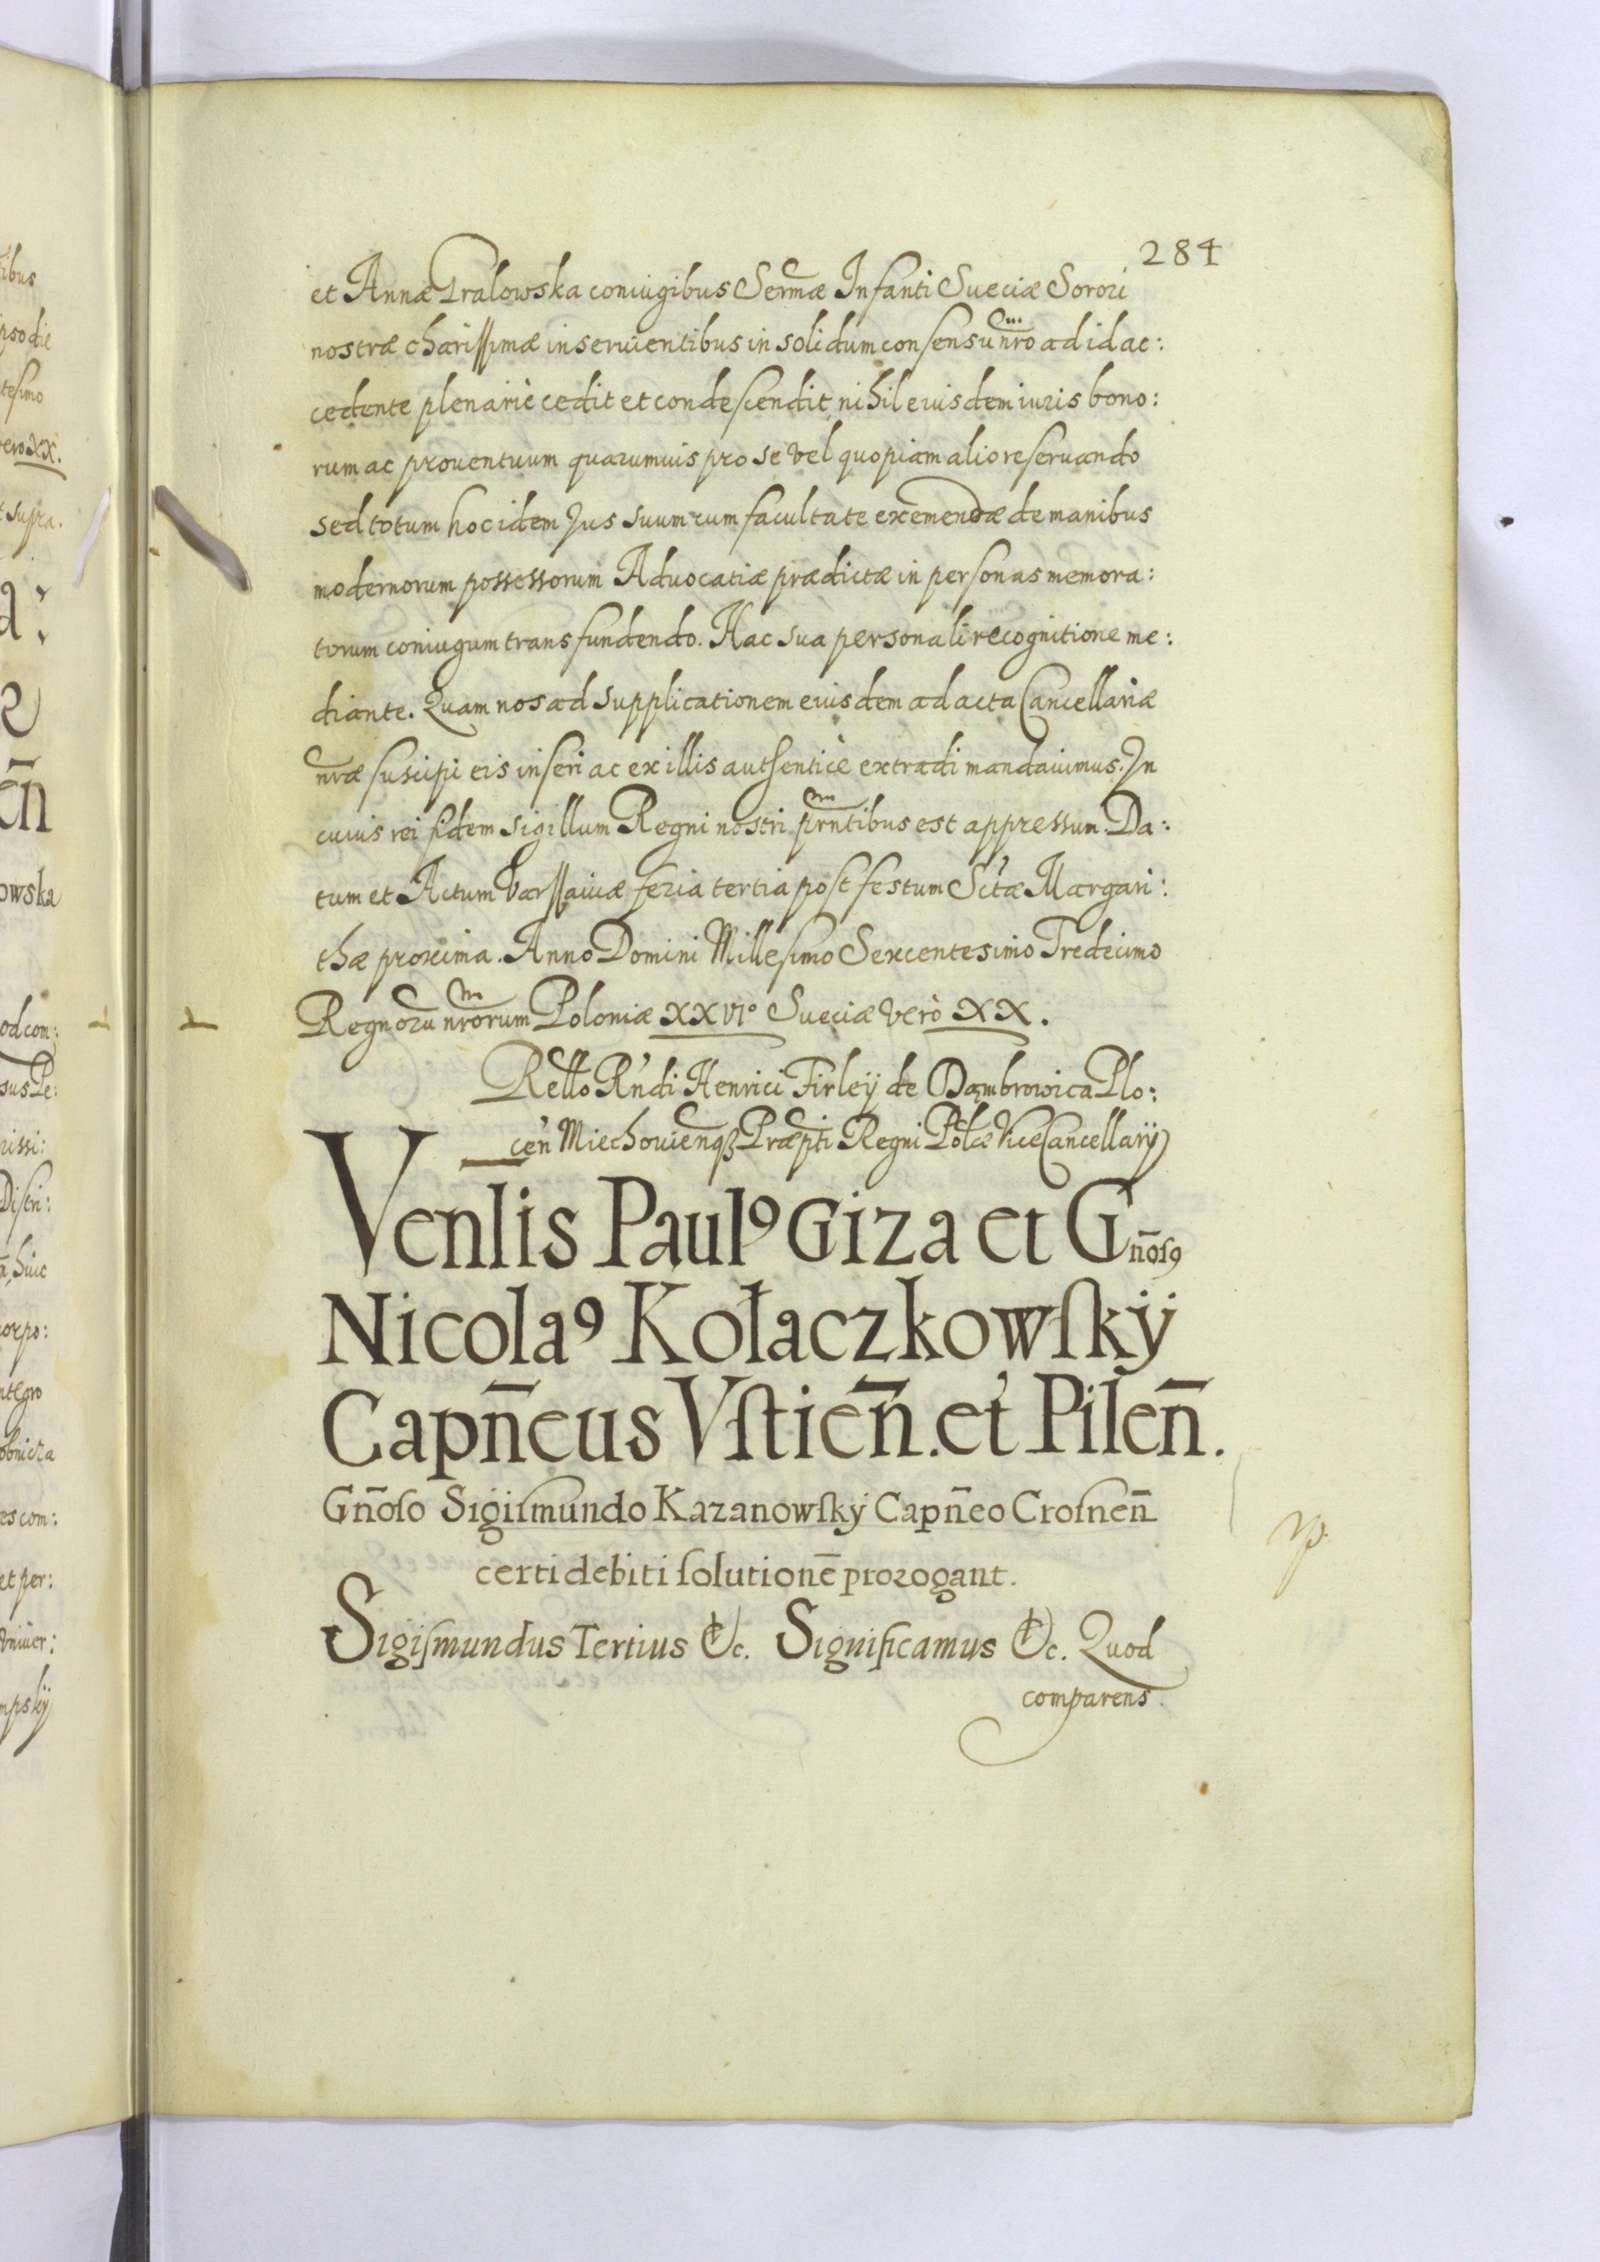 284
et Annæ Pralowska coniugibus Sermæ Infanti Sueciæ Sorori
nostræ charissimæ inseruientibus in solidum consensu nr̃o ad id ac:
cedente plenariè cedit et condescendit, nihil eiusdem iuris bono:
rum ac prouentuum quarumuis pro se vel quopiam alio reseruando
sed totum hoc idem Jus suum cum facultate exemendæ de manibus
modernorum possessorum Advocatiæ prædictæ in personas memora:
torum coniugum transfundendo. Hac sua personali recognitione me:
diante. Quam nos ad supplicationem eiusdem ad acta Cancellariæ
nræ suscipi eis inseri ac ex illis authenticè extradi mandauimus. In
cuius rei fidem sigillum Regni nostri prñtibus est appressum. Da:
tum et Actum Varssauiæ feria tertia post festum Sctæ Margari:
thæ proxima. Anno Domini Millesimo Sexcentesimo Tredecimo
Regnorũ nrorum Poloniæ XXVI° Sueciæ verò XX.
Rello R'ndi Henrici Firleÿ de Dąmbrowica Plo:
cen̄ Miechouienqꝫ Præpti Regni Polæ ViceCancellarÿ
Venlis Paulꝰ Giza et Gñosꝰ
Nicolaꝰ Kołaczkowſkÿ
Capñeus Vſtien̄. et Pilen̄.
Gñoſo Sigiſmundo Kazanowſkÿ Capñeo Croſnen̄
certi debiti ſolutionē prorogant.
Sigiſmundus Tertius &c. Significamus &c. Quod
comparens